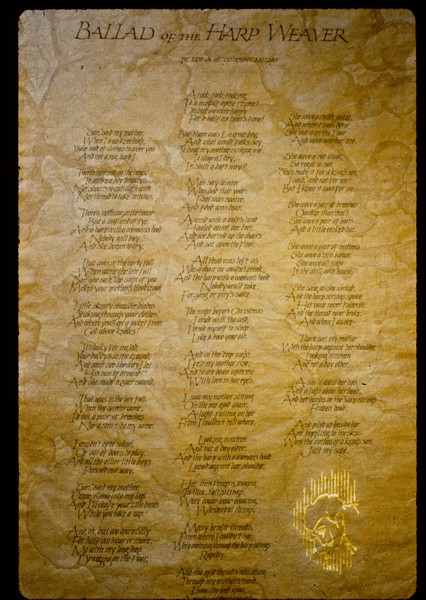 BALLAD OF THE HARP WEAVER
BY EDNA ST. VINCENT MILLAY
"Son," said my mother,
When I was knee-high,
"You've need of clothes to cover you
And not a rag have I.
"There's nothing in the house
To make a boy breeches,
Nor shears to cut a cloth with
Nor thread to take stitches.
"There's nothing in the house
But a loaf-end of rye,
And a harp with a woman's head
Nobody will buy,"
And she began to cry.
That was in the early fall.
When came the late fall,
"Son," she said, "the sight of you
Makes your mother's blood crawl,
"Little skinny shoulder blades
Sticking through your clothes!
And where you'll get a jacket from
God above knows!
"It's lucky for me, lad,
Your daddy's in the ground,
And can't see the way I let
His son go around!"
And she made a queer sound.
That was in the late fall.
When the winter came,
I'd not a pair of breeches
Nor a shirt to my name.
I couldn't go to school,
Or out of doors to play.
And all the other little boys
Passed our way.
"Son," said my mother,
"Come, climb into my lap,
And I'll chafe your little bones
While you take a nap."
And, oh, but we were silly
For half an hour or more,
Me with my long legs
Dragging on the floor,
A-rock-rock-rocking
To a mother-goose rhyme!
Oh, but we were happy
For half an hour's time!
But there was I, a great boy,
And what would folks say
To hear my mother singing me
To sleep all day,
In such a daft way?
Men say the winter
Was bad that year;
Fuel was scarce,
And food was dear.
A wind with a wolf's head
Howled about our door,
And we burned up the chairs
And sat upon the floor.
All that was left us
Was a chair we couldn't break,
And the harp with a woman's head
Nobody would take,
For song or pity's sake.
The night before Christmas
I cried with the cold,
I cried myself to sleep
Like a two-year-old.
And in the deep night
I felt my mother rise,
And stare down upon me
With love in her eyes.
I saw my mother sitting
On the one good chair,
A light falling on her
From I couldn't tell where,
Looking nineteen
And not a day older,
And the harp with a woman's head
Leaned against her shoulder.
Her thin fingers, moving
In the thin, tall strings,
Were weav-weav-weaving
Wonderful things.
Many bright threads,
From where I couldn't see,
Were running through the harp-strings
Rapidly,
And the gold threads whistling
Through my mother's hand.
I saw the web grow,
She wove a child's jacket,
And when it was done
She laid it on the floor
And wove another one.
She wove a red cloak
So regal to see,
"She's made it for a king's son,"
I said, "and not for me."
But I knew it was for me.
She wove a pair of breeches
Quicker than that!
She wove a pair of boots
And a little cocked hat.
She wove a pair of mittens,
She wove a little blouse,
She wove all night
In the still, cold house.
She sang as she worked,
And the harp-strings spoke;
Her voice never faltered,
And the thread never broke.
And when I awoke,—
There sat my mother
With the harp against her shoulder,
Looking nineteen
And not a day older,
A smile about her lips,
And a light about her head,
And her hands in the harp-strings
Frozen dead.
And piled up beside her
And toppling to the skies,
Were the clothes of a king's son,
Just my size.